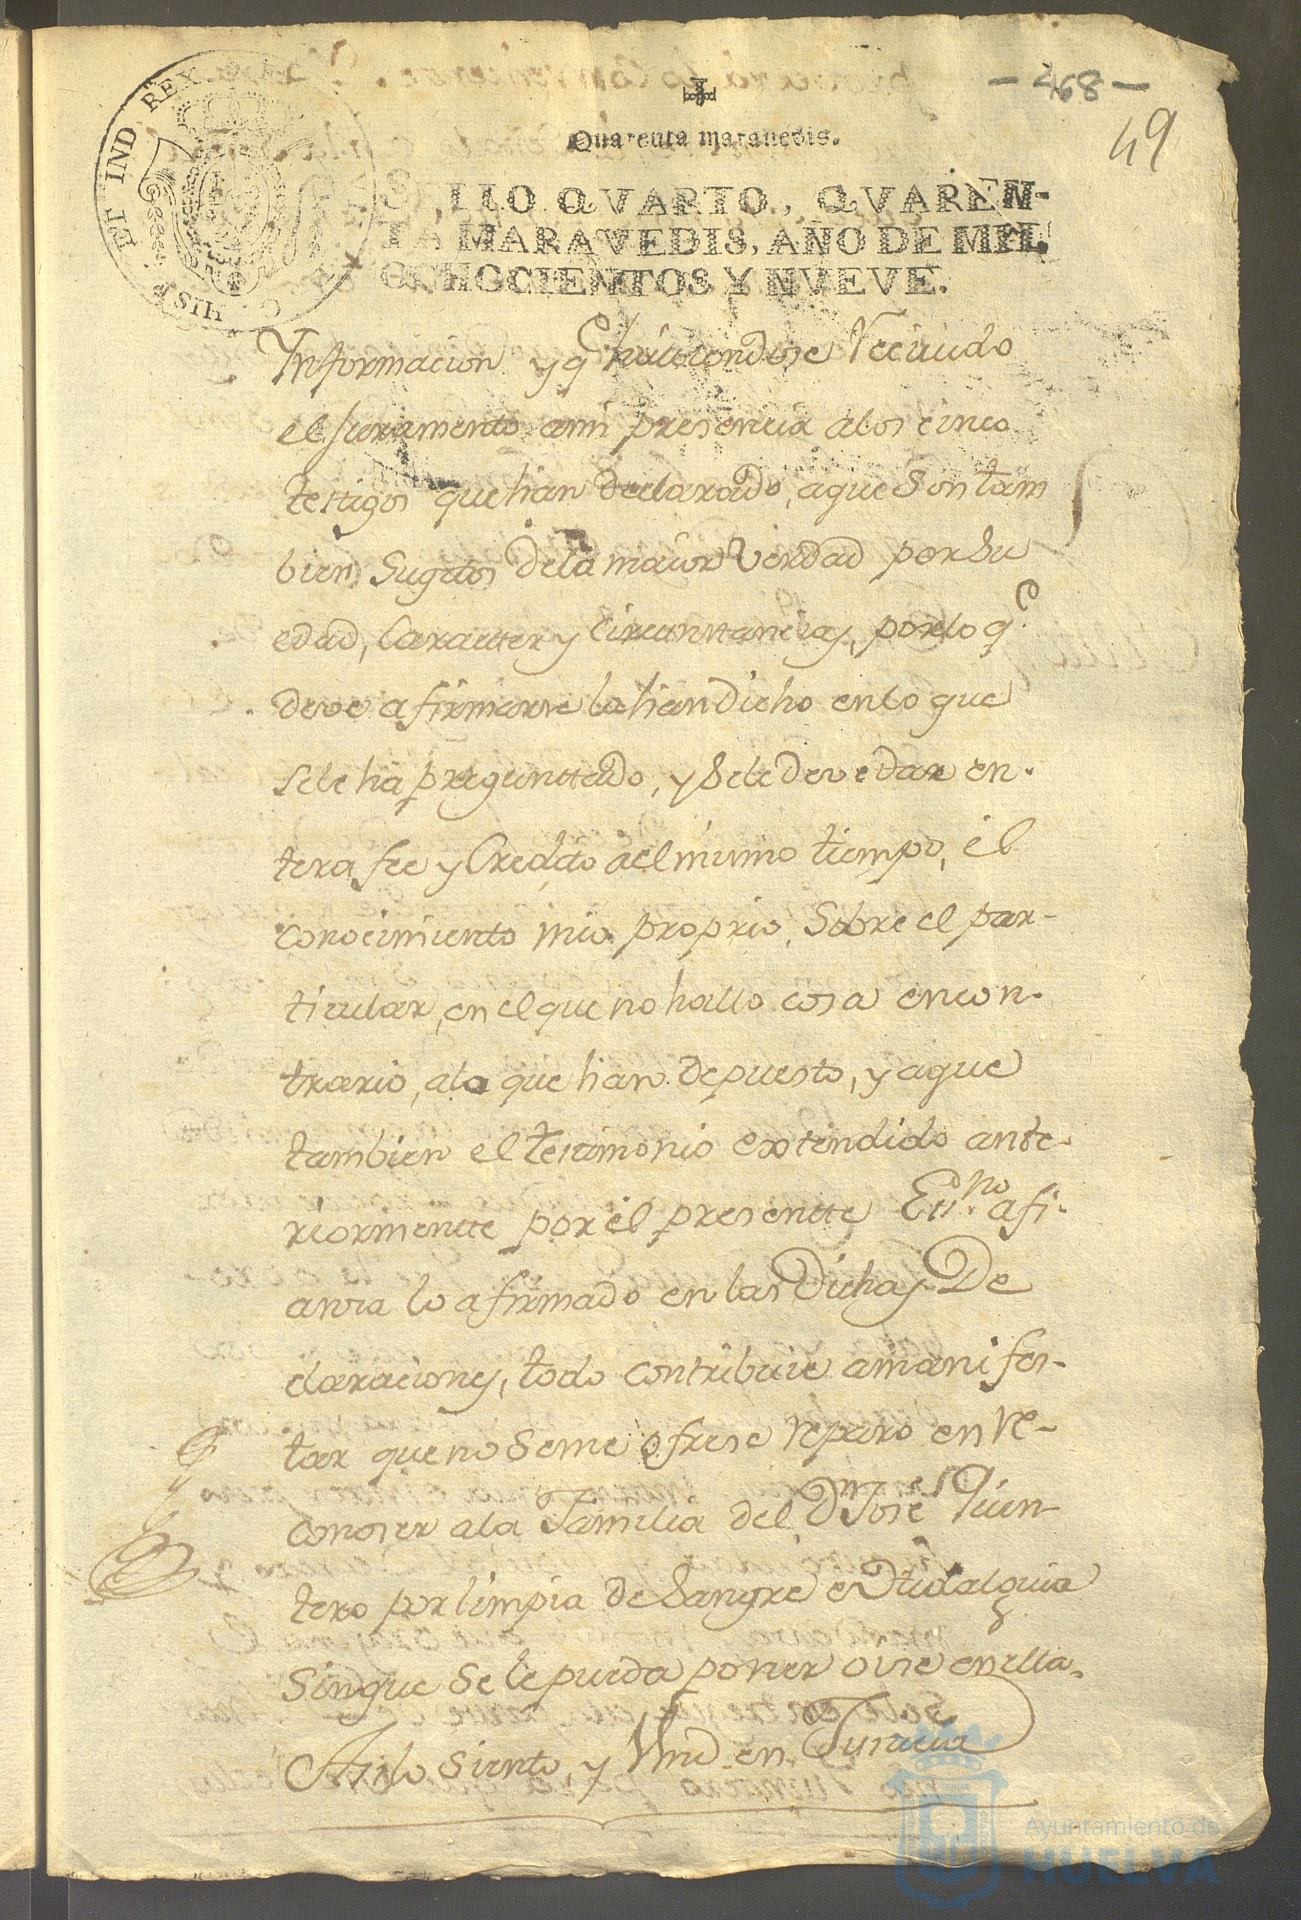 - 468 -
49
Quarenta maravedis.
SELLO QVARTO, QVAREN-
TA MARAVEDIS, AÑO DE MIL
OCHOCIENTOS Y NVEVE.
HISP. ET IND. REX
Informacion y q.e haviendose recivido
el juramento ami presencia alos cinco
testigos que han declarado, aque Son tam
bien Sugetos dela maior Verdad por Su
edad, Caracter y Circunstancias, porlo q.e
deve afirmarse la han dicho enlo que
sele ha preguntado, y Sele deve dar en-
tera fee y Credito ael mismo tiempo, el
conocimiento mio proprio, Sobre el par-
ticular, en el que no hallo cosa encon-
trario, alo que han depuesto, y aque
tambien el testimonio extendido ante-
riormentte por el presentte Ess.no afi-
ansa lo afirmado en las Dichas De
claraciones, todo contribuie amanifes-
tar que no Seme ofrese reparo en re-
conoser ala Familia del D.n Jose Quin
tero por limpia de Sangre e Hidalguia
Sinque Se le pueda poner ovise en ella.
Asi lo Siento, y Vmd. en Justicia
Ayuntamiento de
HUELVA